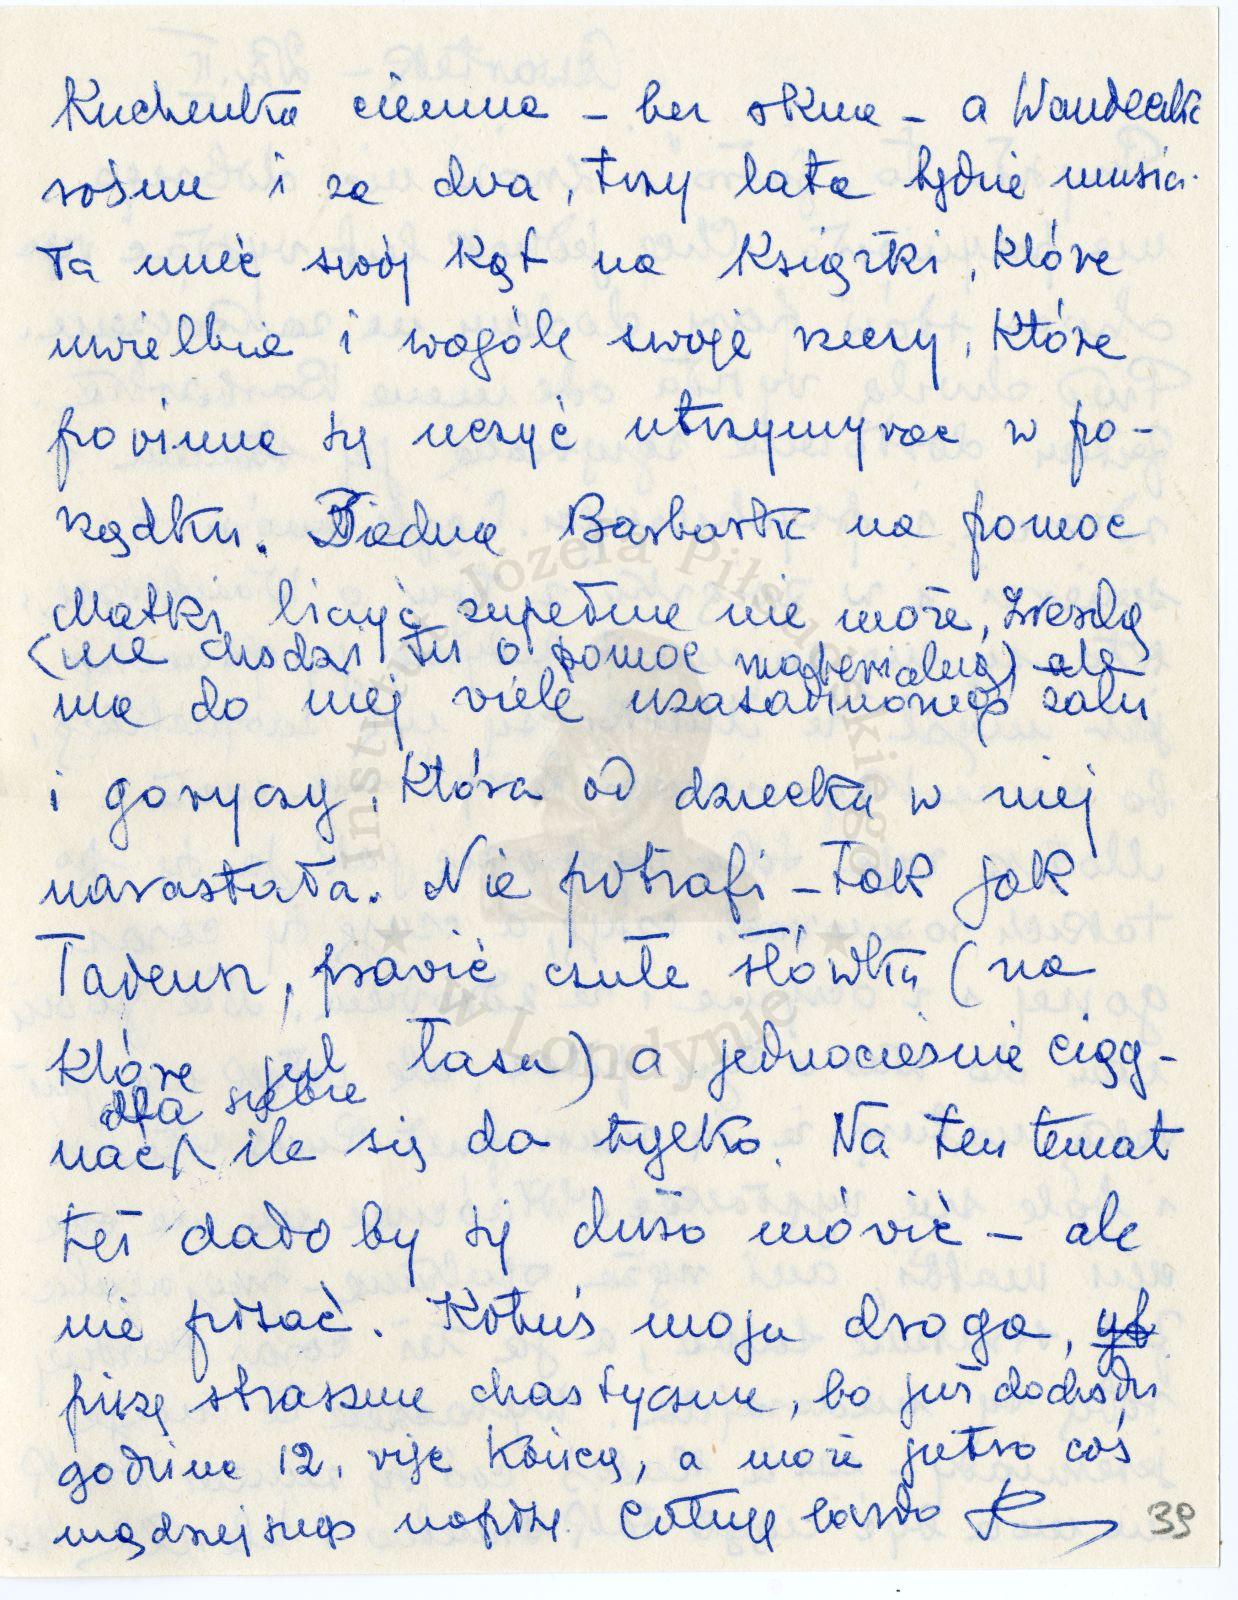 Kuchenka ciemna – bez okna – a Wandeczka
rośnie i za dwa, trzy lata będzie musia-
ła mieć swój kąt na książki, które
uwielbia i wogóle swoje rzeczy, które
powinna się uczyć utrzymywać w po-
rządku. Biedna Barbarka na pomoc
Matki liczyć zupełnie nie może, zresztą
(nie chodzi tu o pomoc materialną) ale
ma do niej wiele uzasadnionego żalu
i goryczy, która od dziecka w niej
narastała. Nie potrafi – tak jak
Tadeusz, prawić czułe słówka (na
które jest łasa) a jednocześnie ciąg-
dla siebie
nąć ile się da tylko. Na ten temat
też dałoby się dużo mówić – ale
nie pisać. Kotuś moja droga,
piszę strasznie chaotycznie, bo już dochodzi
godzina 12, więc kończę, a może jutro coś
mądrzejszego napiszę. Całuję bardzo
39
Instytut Józefa Piłsudskiego
w Londynie